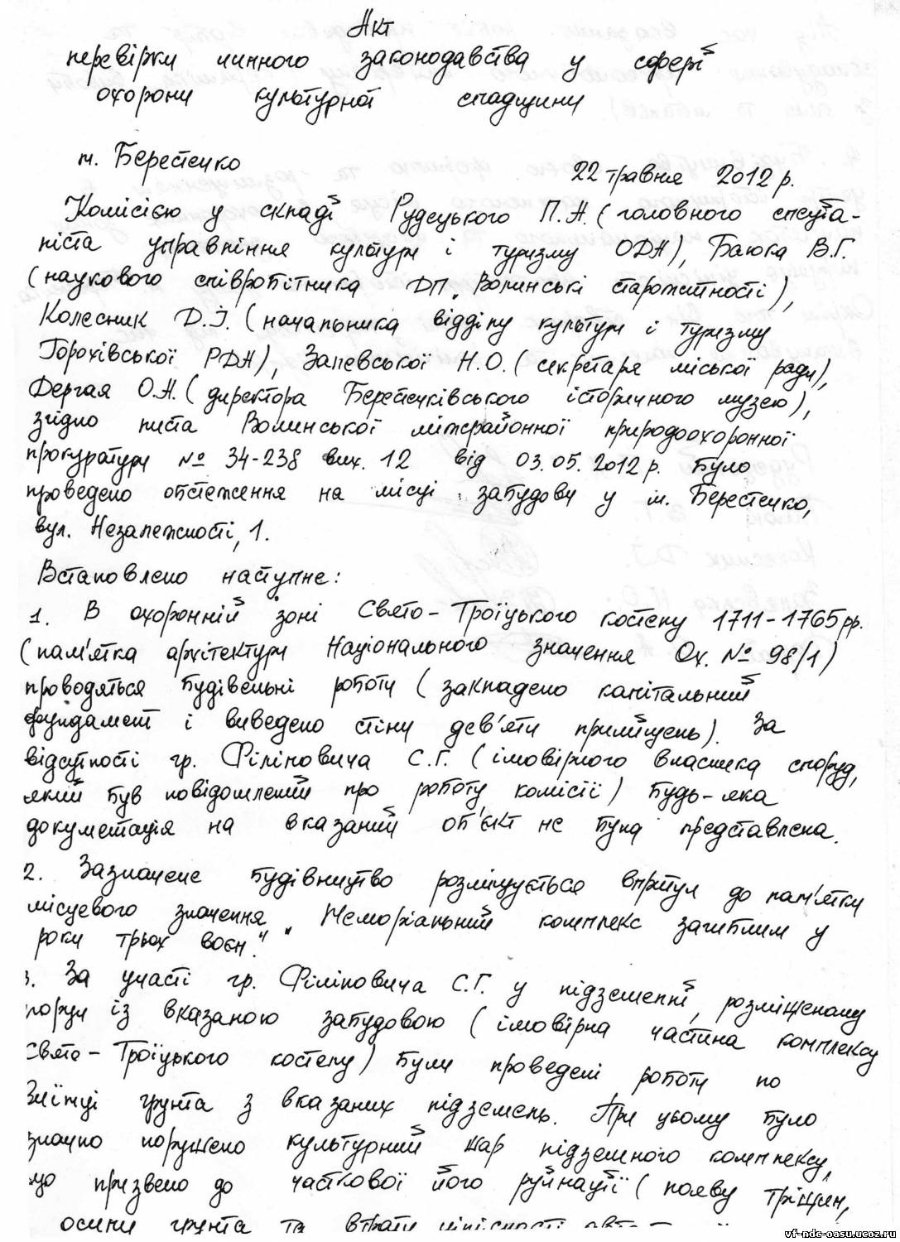 Акт
перевірки чинного законодавства у сфері
охорони культурної спадщини
м. Берестечко
22 травня 2012 р.
Комісією у складі Рудецького П.А (головного спеціа-
ліста управління культури і туризму ОДА), Баюка В.Г.
(наукового співробітника ДП „Волинські старожитності),
Колесник Д.І. (начальника відділу культури і туризму
Горохівської РДА), Залевської Н.О. (секретаря міської ради),
Дергая О.А. (директора Берестечківського історичного музею),
згідно листа Волинської міжрайонної природоохоронної
прокуратури № 34-238 вих. 12 від 03.05.2012 р. було
проведено обстеження на місці забудови у м. Берестечко,
вул. Незалежності, 1.
Встановлено наступне:
1. В охоронній зоні Свято-Троїцького костелу 1711-1765 рр.
(пам'ятка архітектури Національного значення Ох. № 98/1)
проводяться будівельні роботи (закладено капітальний
фундамент і виведено стіни дев'яти приміщень). За
відсутності гр. Філіповича С.Г. (імовірного власника споруд,
який був повідомлений про роботу комісії) будь-яка
документація на вказаний об'єкт не була представлена.
2. Зазначене будівництво розміщується впритул до пам'ятки
місцевого значення „Меморіальний комплекс загиблим у
роки трьох воєн".
3. За участі гр. Філіповича С.Г. у підземеллі, розміщеному
поруч із вказаною забудовою (імовірна частина комплексу
Свято-Троїцького костелу) були проведені роботи по
виїмці грунта з вказаних підземель. При цьому було
значно порушено культурний шар підземного комплексу,
що призвело до часткової його руйнації (появу тріщин,
осипи грунта та втрати цілісності
vf-ndc-oasu.ucoz.ru